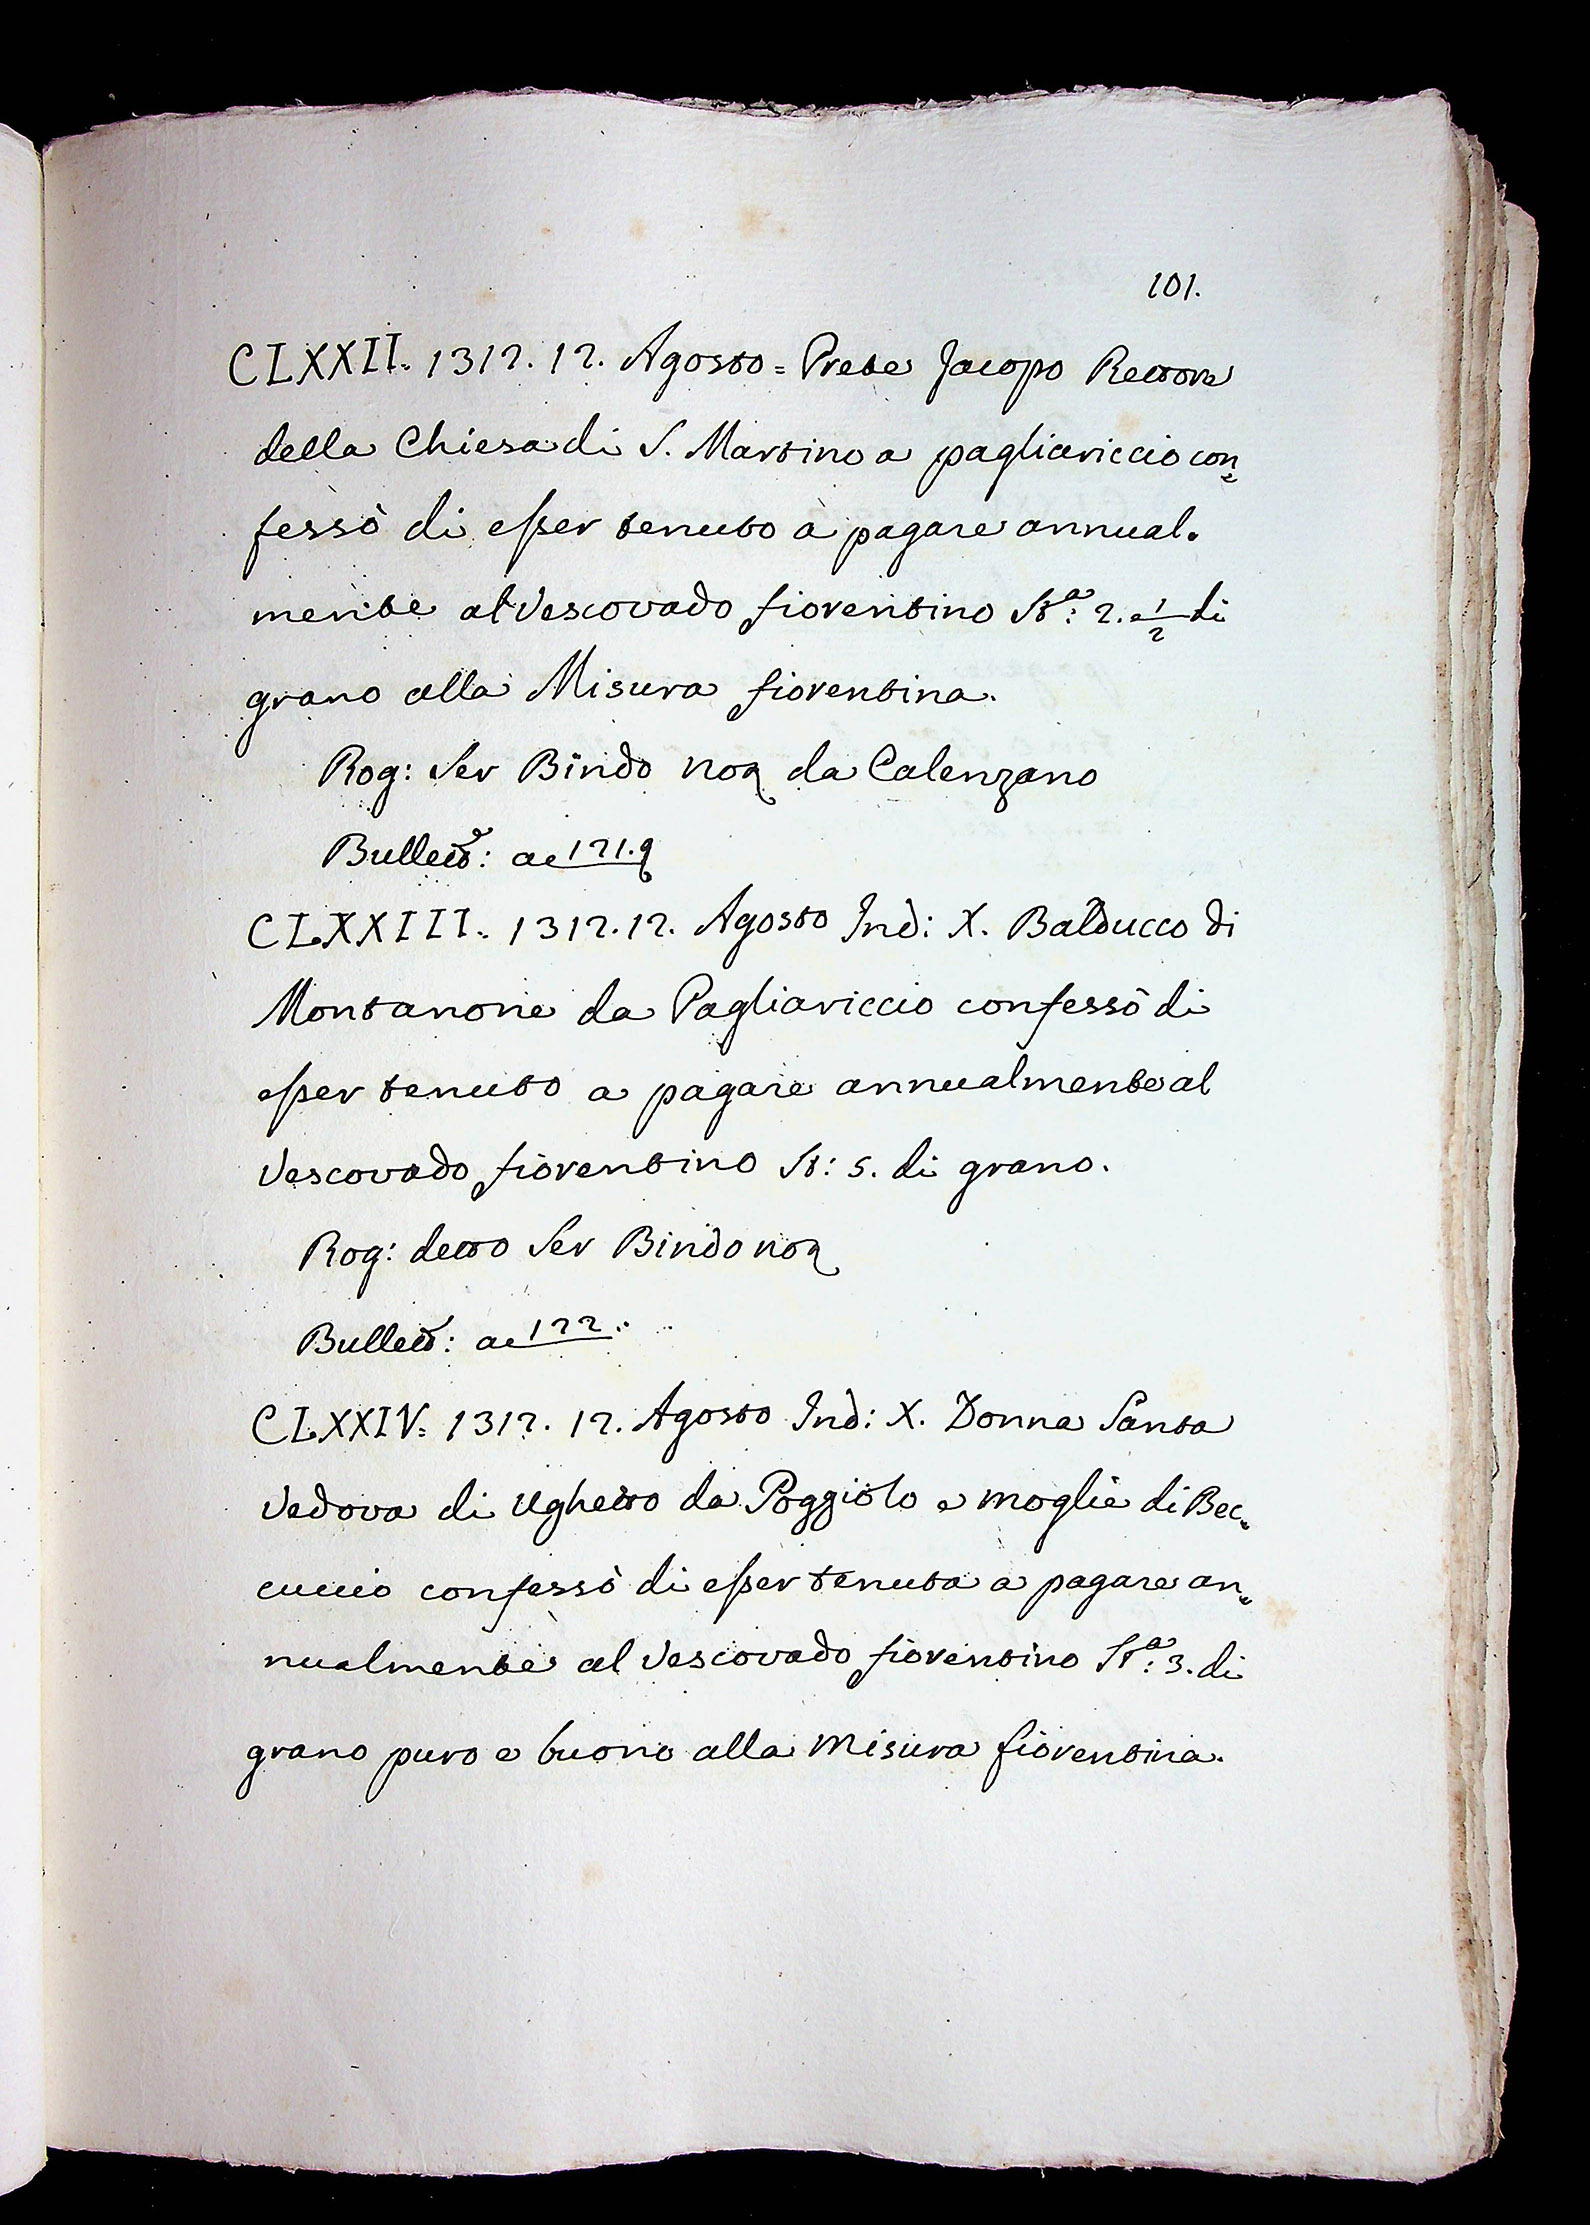 101.
CLXXII. 1312. 12. Agosto = Prete Jacopo Rettore
della Chiesa di S. Martino a pagliariccio con=
fessò di esser tenuto a pagare annual.
mente al Vescovado fiorentino Sta: 2. e 1/2 di
grano alla Misura fiorentina.
Rog: Ser Bindo not da Calenzano
Bullett: a c 121.
CLXXIII. 1312. 12. Agosto Ind: X. Balducco di
Montanone da Pagliariccio confessò di
esser tenuto a pagare annualmente al
Vescovado fiorentino St: 5. di grano.
Rog: detto Ser Bindo not
Bullett: a c 122.
CLXXIV. 1312. 12. Agosto Ind: X. Donna Santa
Vedova di Ughetto da Poggiolo e moglie di Bec=
cuccio confessò di esser tenuta a pagare an=
nualmente al Vescovado fiorentino Sta: 3. di
grano puro e buono alla misura fiorentina.